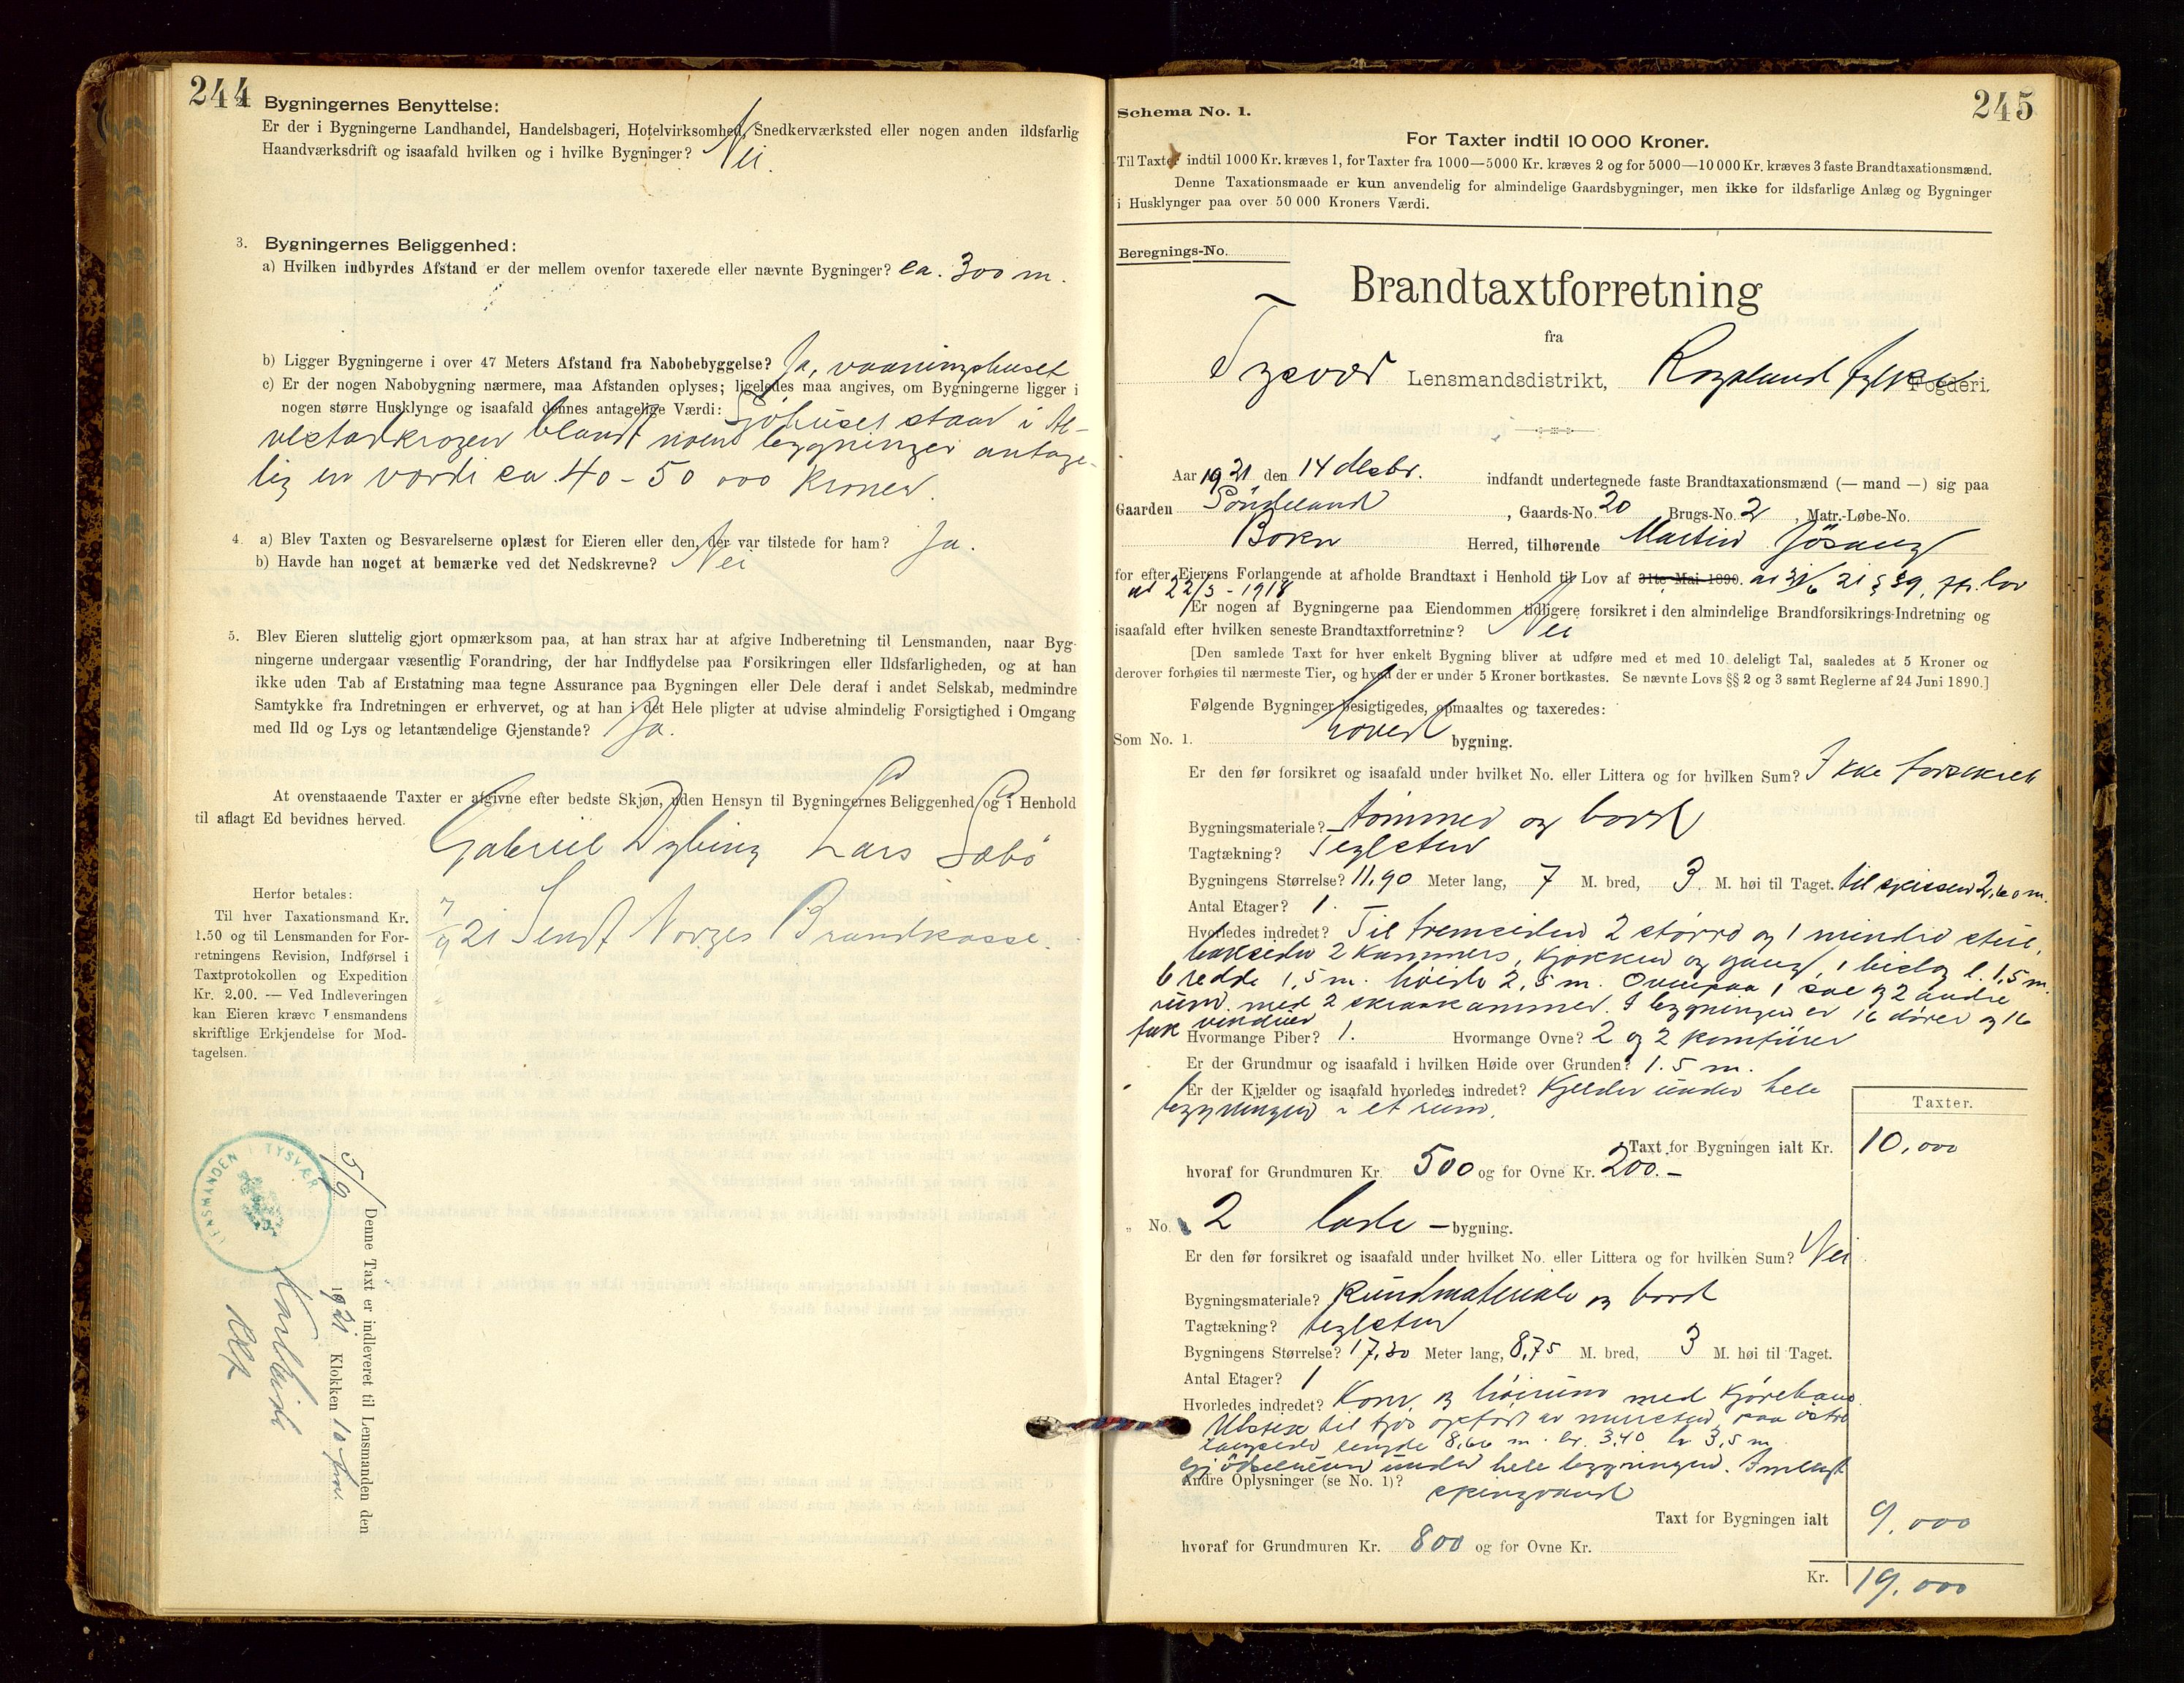 244
Bygningernes Benyttelse:
Er der i Bygningerne Landhandel, Handelsbageri, Hotelvirksomhed, Snedkerværksted eller nogen anden ildsfarlig
Haandværksdrift og isaafald hvilken og i hvilke Bygninger? Nei.
3. Bygningernes Beliggenhed:
a) Hvilken indbyrdes Afstand er der mellem ovenfor taxerede eller nævnte Bygninger? ca. 300 m.
b) Ligger Bygningerne i over 47 Meters Afstand fra Nabobebyggelse? Ja, vaaningshuset
c) Er der nogen Nabobygning nærmere, maa Afstanden oplyses; ligeledes maa angives, om Bygningerne ligger i
nogen større Husklynge og isaafald dennes antagelige Værdi: Sjöhuset staar i
blandt noen bygninger antage-
lig en værdi ca. 40-50 000 kroner.
4. a) Blev Taxten og Besvarelserne oplæst for Eieren eller den, der var tilstede for ham? Ja.
b) Havde han noget at bemærke ved det Nedskrevne? Nei
5. Blev Eieren sluttelig gjort opmærksom paa, at han strax har at afgive Indberetning til Lensmanden, naar Byg-
ningerne undergaar væsentlig Forandring, der har Indflydelse paa Forsikringen eller Ildsfarligheden, og at han
ikke uden Tab af Erstatning maa tegne Assurance paa Bygningen eller Dele deraf i andet Selskab, medmindre
Samtykke fra Indretningen er erhvervet, og at han i det Hele pligter at udvise almindelig Forsigtighed i Omgang
med Ild og Lys og letantændelige Gjenstande? Ja.
At ovenstaaende Taxter er afgivne efter bedste Skjøn, uden Hensyn til Bygningernes Beliggenhed og i Henhold
til aflagt Ed bevidnes herved.
Gabriel Dybing Lars Sæbö
Herfor betales:
Til hver Taxationsmand Kr.
1.50 og til Lensmanden for For-
retningens Revision, Indførsel i
Taxtprotokollen og Expedition
Kr. 2.00. — Ved Indleveringen
kan Eieren kræve Lensmandens
skriftlige Erkjendelse for Mod-
tagelsen.
7/9 21 Sendt Norges Brandkasse.
Denne Taxt er indleveret til Lensmanden den
5/9 1921 Klokken 10 fm.
LENSMANDEN I TYSVÆR
245
Schema No. 1.
For Taxter indtil 10 000 Kroner.
Til Taxter indtil 1000 Kr. kræves 1, for Taxter fra 1000—5000 Kr. kræves 2 og for 5000—10 000 Kr. kræves 3 faste Brandtaxationsmænd.
Denne Taxationsmaade er kun anvendelig for almindelige Gaardsbygninger, men ikke for ildsfarlige Anlæg og Bygninger
i Husklynger paa over 50 000 Kroners Værdi.
Beregnings-No.
Brandtaxtforretning
fra
Tysvær Lensmandsdistrikt, Rogaland fylke Fogderi.
Aar 1921 den 14 desbr. indfandt undertegnede faste Brandtaxationsmænd (— mand —) sig paa
Gaarden , Gaards-No. 20 Brugs-No. 2 , Matr.-Løbe-No.
Bokn Herred, tilhørende Martin Jösang
for efter Eierens Forlangende at afholde Brandtaxt i Henhold til Lov af 31te Mai 1890. 21 § 39, lov
av 22/3 - 1918
Er nogen af Bygningerne paa Eiendommen tidligere forsikret i den almindelige Brandforsikrings-Indretning og
isaafald efter hvilken seneste Brandtaxtforretning? Nei
[Den samlede Taxt for hver enkelt Bygning bliver at udføre med et med 10 deleligt Tal, saaledes at 5 Kroner og
derover forhøies til nærmeste Tier, og hvad der er under 5 Kroner bortkastes. Se nævnte Lovs §§ 2 og 3 samt Reglerne af 24 Juni 1890.]
Følgende Bygninger besigtigedes, opmaaltes og taxeredes:
Som No. 1. hoved bygning.
Er den før forsikret og isaafald under hvilket No. eller Littera og for hvilken Sum? Ikke forsikret
Bygningsmateriale? tömmer og bord
Tagtækning? Teglsten
Bygningens Størrelse? 11,90 Meter lang, 7 M. bred, 3 M. høi til Taget. til 2,60 m.
Antal Etager? 1.
Hvorledes indredet? Til fremsiden 2 större og 1 mindre stue,
baksiden 2 kammers, kjökken og gang, 1 bislag l. 1,5 m.
bredde 1,5 m. höide 2,5 m. Ovenpaa 1 sal og 2 andre
rum med 2 skraakammer. I bygningen er 16 dörer og 16
fak vinduer
Hvormange Piber? 1. Hvormange Ovne? 2 og 2 komfurer
Er der Grundmur og isaafald i hvilken Høide over Grunden? 1.5 m.
Er der Kjælder og isaafald hvorledes indredet? Kjelder under hele
bygningen i et rum.
Taxter.
Taxt for Bygningen ialt Kr. 10,000
hvoraf for Grundmuren Kr. 500 og for Ovne Kr. 200.-
" No. 2 lade - bygning.
Er den før forsikret og isaafald under hvilket No. eller Littera og for hvilken Sum? Nei
Bygningsmateriale? Rundmateriale og bord
Tagtækning? teglsten
Bygningens Størrelse? 17,30 Meter lang, 8,75 M. bred, 3 M. høi til Taget.
Antal Etager? 1
Hvorledes indredet? Korn og höirum med kjörebane
til fjös opfört av mursten paa östre
langside lengde 8,60 m. br. 3,40 h 3,5 m
Gjödselrum under hele bygningen. Innlagt
Andre Oplysninger (se No. 1)? springvand
Taxt for Bygningen ialt 9.000
hvoraf for Grundmuren Kr. 800 og for Ovne Kr.
Kr. 19.000